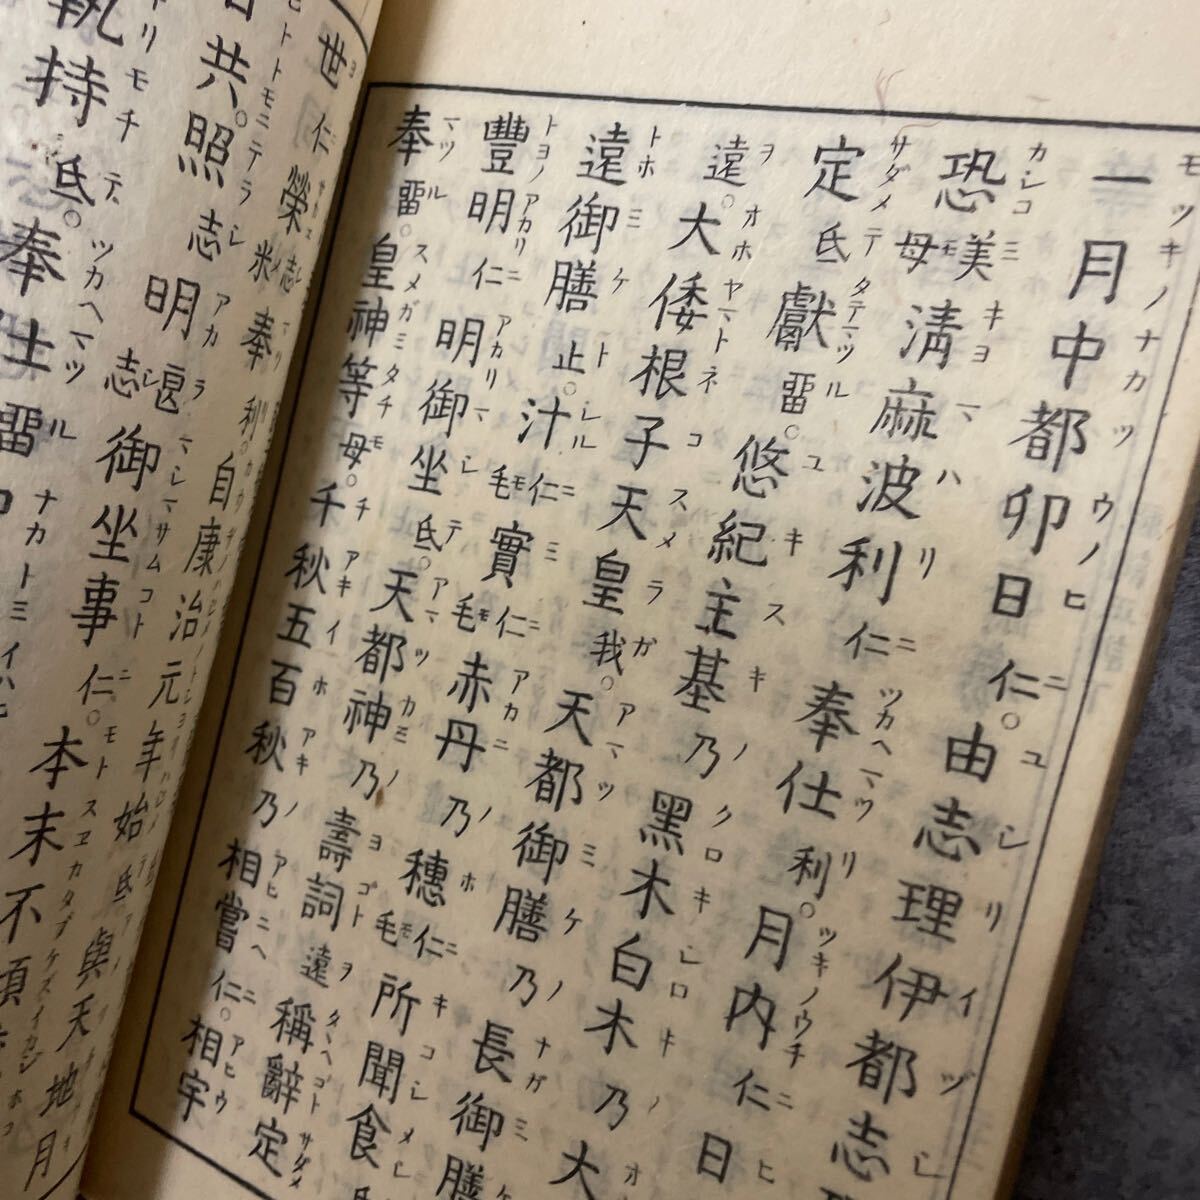 一月中都卯日仁。由志理伊都志
恐美恐母清麻波利仁奉仕利。月内仁日
定氐獻留。悠紀主基乃黑木白木乃大
遠。大倭根子天皇我。天都御膳乃長御膳
遠御膳止。汁仁毛實仁毛赤丹乃穗仁毛所聞食
豐明仁明御坐氐。天都神乃壽詞遠稱辭定
奉留。皇神等母。千秋五百秋乃相嘗仁。相宇
世仁榮志米奉利。自康治元年始氐。與天地月
日共。照志明良志御坐事仁。本末不傾
執持氐。奉仕留中